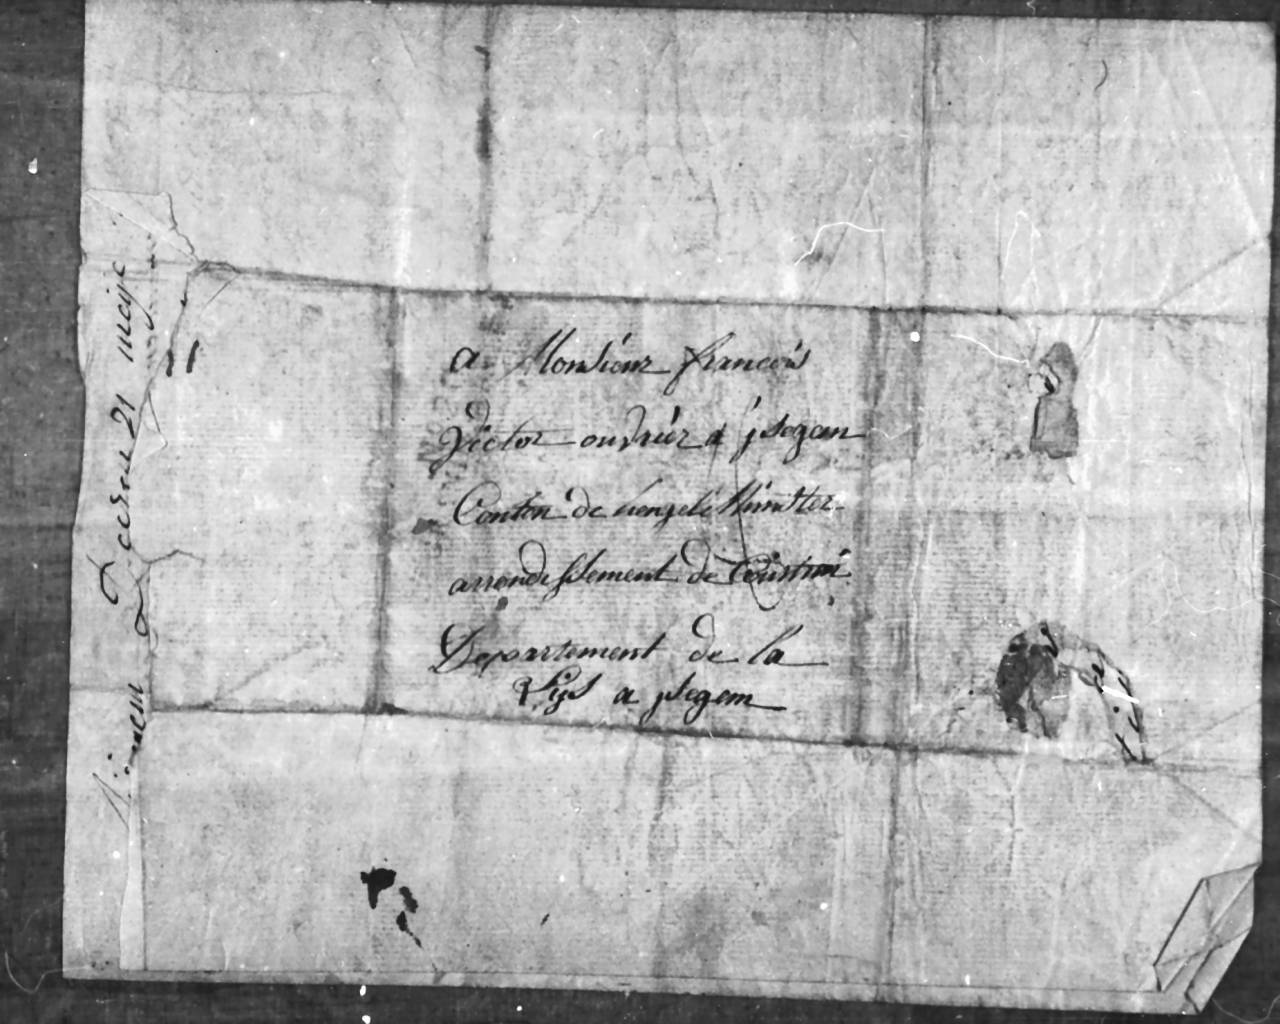 a Monsieur francois
Victor ouvrier a jsegem
Canton de hengele Munster
arrondissement de Courtrai
Departement de la
Lijs a jsegem
21 meije